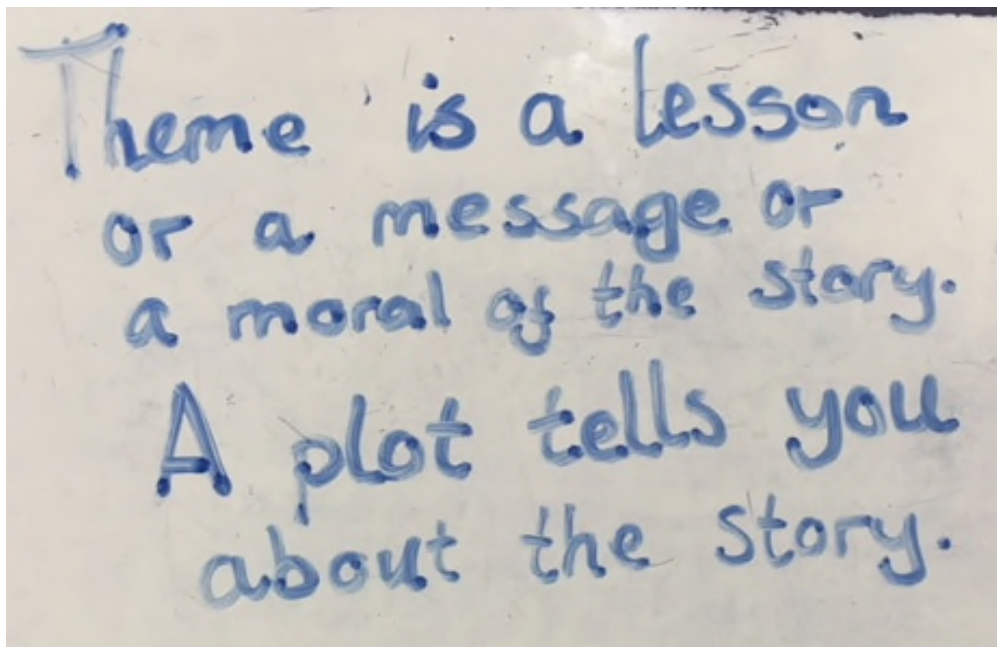 Theme is a lesson
or a message or
a moral of the story.
A plot tells you
about the story.